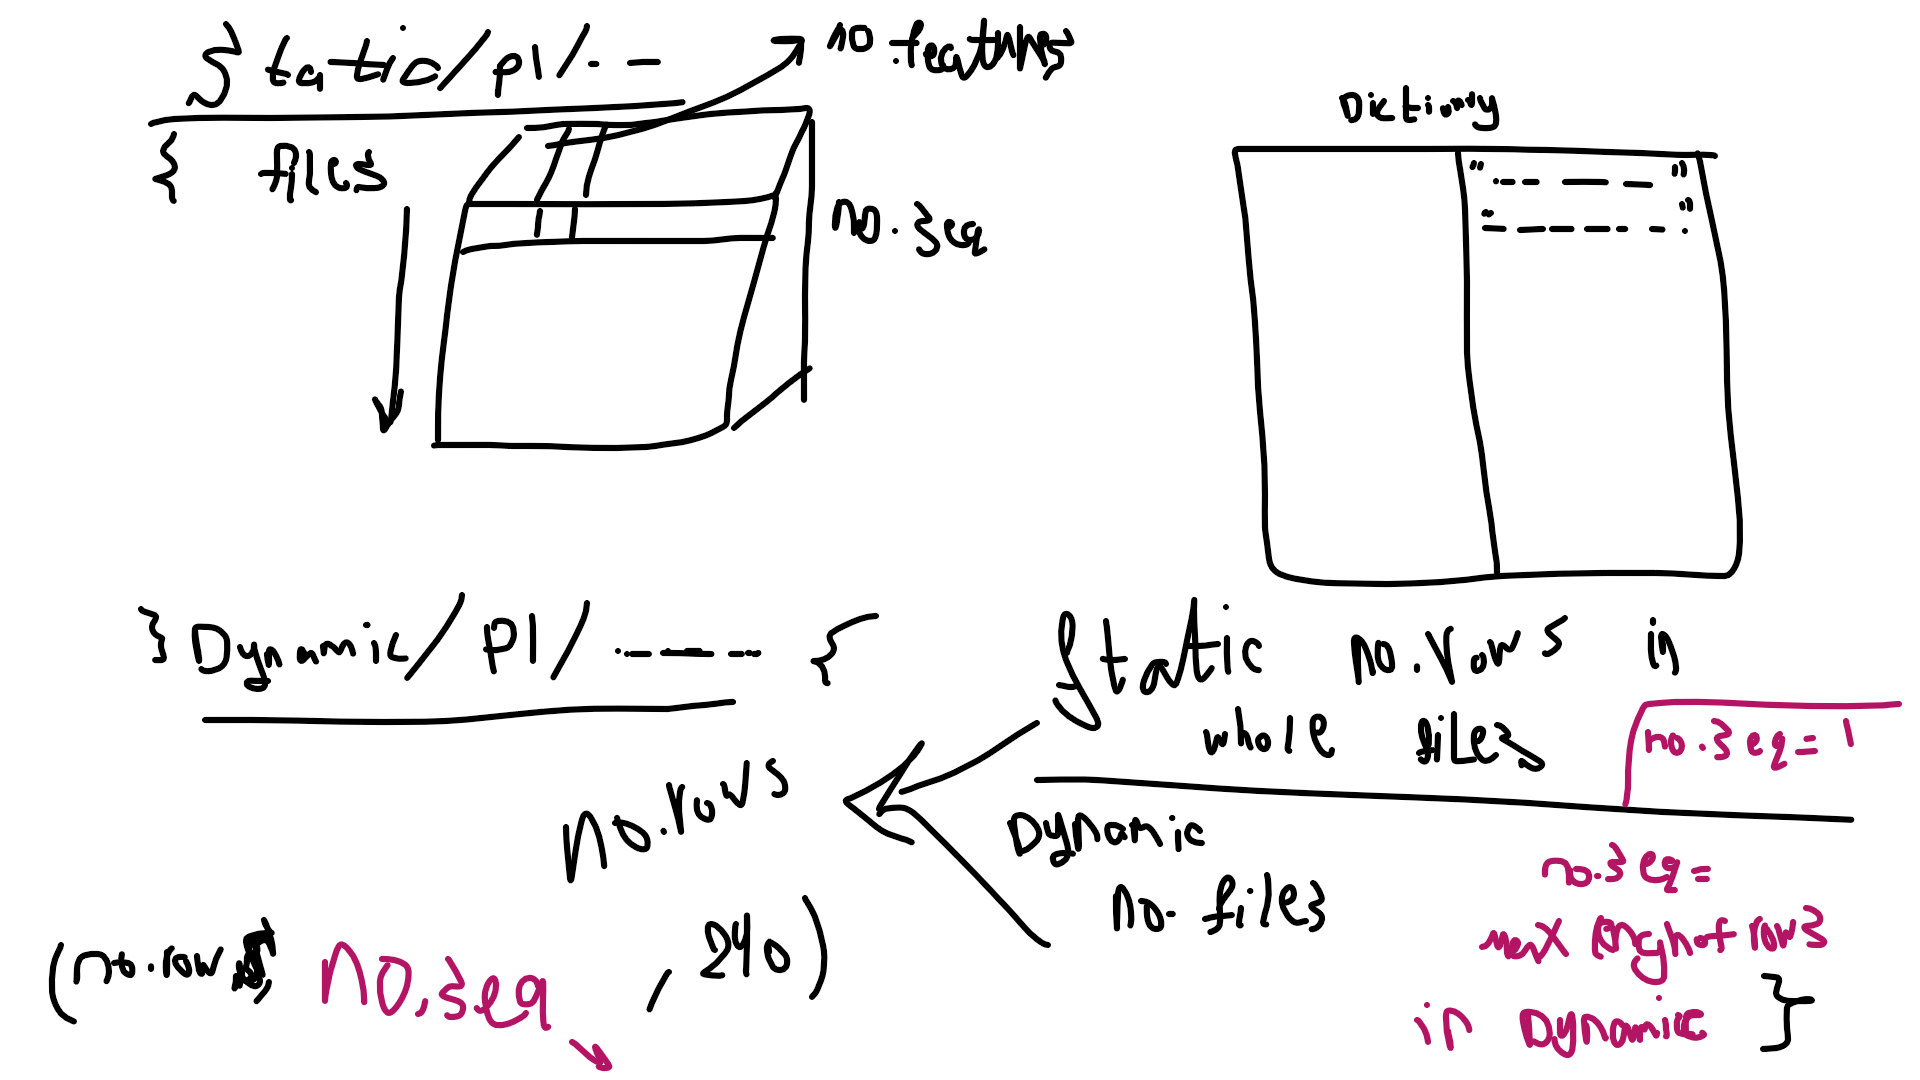 Static/pl/.--
no.features
{ files
no.seq
Dictionary
" .-- -- - "
" - ---- -- - . "
} Dynamic/Pl/.------ {
Static no.rows in
whole files
no.seq = 1
no.rows
Dynamic
no. files
no.seq =
max lenght of rows
in Dynamic }
(no.rows, no.seq , 240)